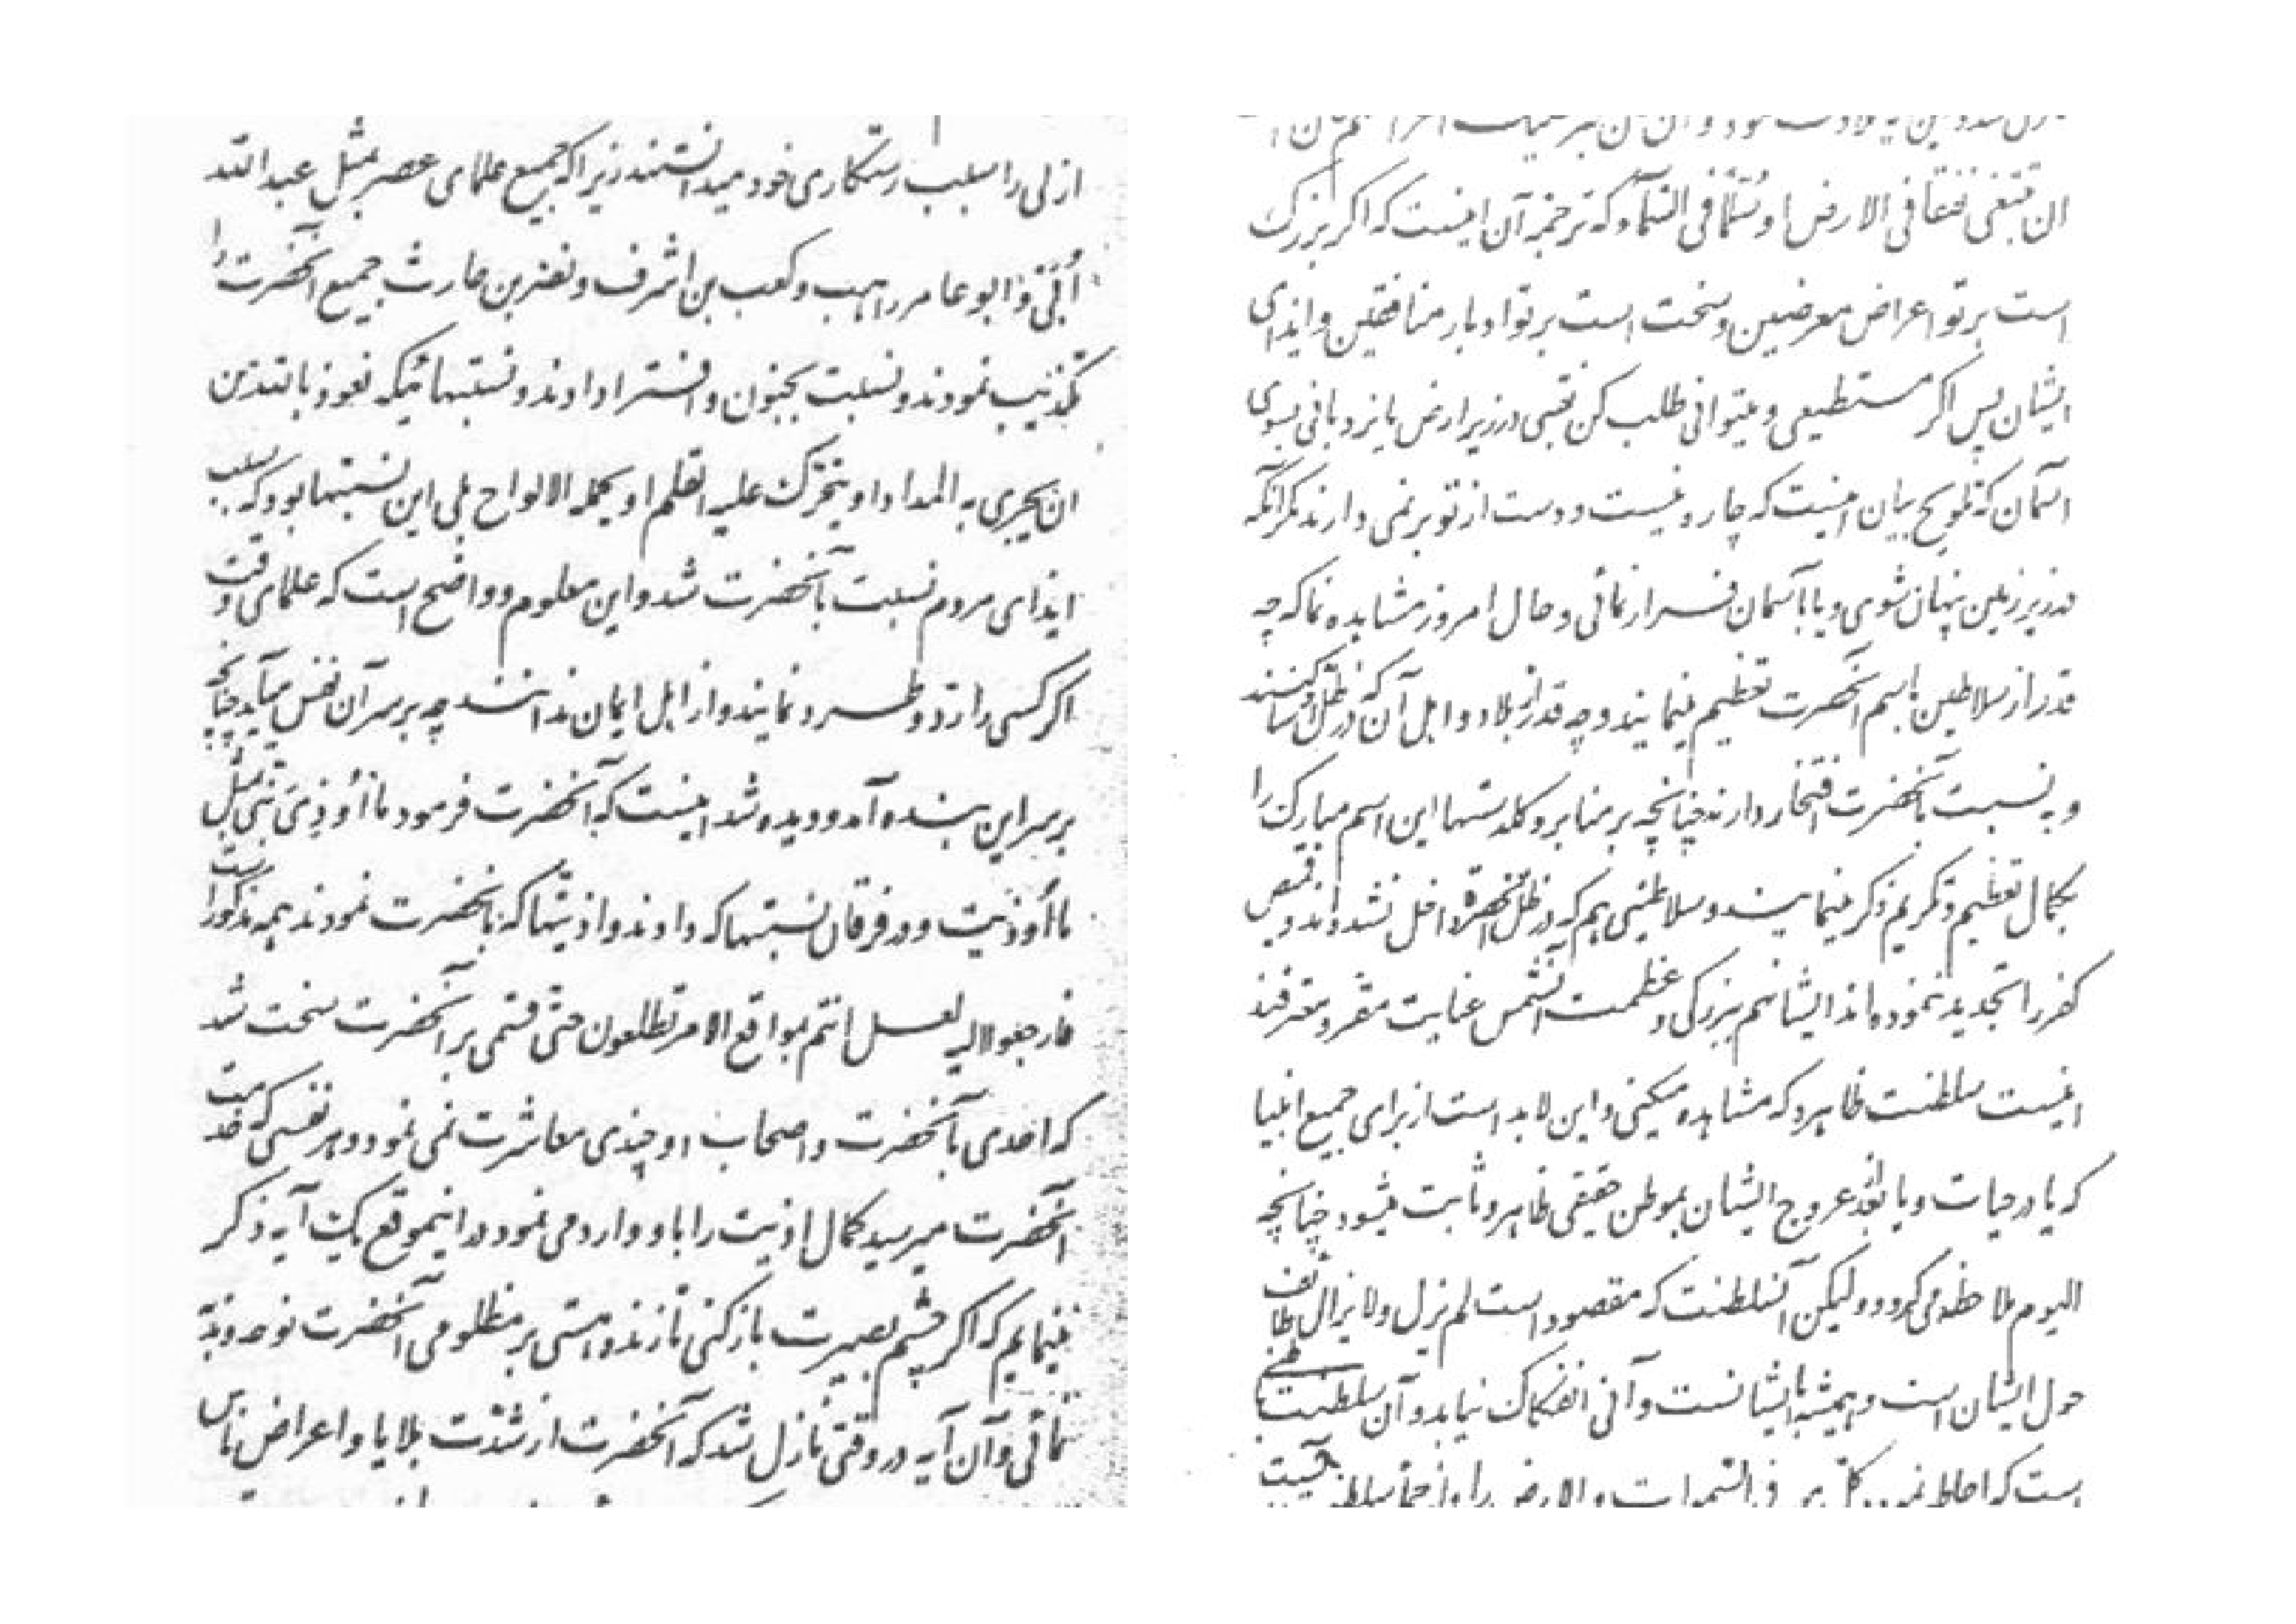 ازلی را سبب رستگاری خود میدانستند زیرا که جمیع علمای عصر مثل عبدالله
اُبَیّ و ابو عامر راهب و کعب بن اشرف و نضر بن حارث جمیع آنحضرت را
تکذیب نمودند و نسبت بجنون و افترا دادند و نسبتهائیکه نعوذ بالله من
ان یجری به المداد او یتحرّک علیه القلم او یحمله الالواح بلی این نسبتها بود که سبب
ایذای مردم نسبت بآنحضرت شد و این معلوم و واضح است که علمای وقت
اگر کسی را ردّ و طرد نمایند و از اهل ایمان ندانند چه بر سر آن نفس میآید چنانچه
بر سر این بنده آمد و دیده شد اینست که آنحضرت فرمود ما أُوذِیَ نبیّ بمثل
ما أوذیت و در فرقان نسبتها که دادند و اذیّتها که بآنحضرت نمودند همه مذکور است
فارجعوا الیه لعل انتم بمواقع الامر تطلعون حتّی قسمی بر آنحضرت سخت شد
که احدی بآنحضرت و اصحاب او چندی معاشرت نمی نمود و هر نفسی که خدمت
آنحضرت میرسید کمال اذیت را باو وارد می نمود در اینموقع یک آیه ذکر
مینمایم که اگر چشم بصیرت باز کنی تا زنده هستی بر مظلومی آنحضرت نوحه و ندبه
نمائی و آن آیه در وقتی نازل شد که آنحضرت از شدّت بلایا و اعراض ناس
ان تبتغی نفقا فی الارض او سُلّمًا فی السّمآء که ترجمه آن اینست که اگر بزرگ
است بر تو اعراض معرضین و سخت است بر تو ادبار منافقین و ایذای
ایشان پس اگر مستطیعی و میتوانی طلب کن نقبی در زیر ارض یا نردبانی بسوی
آسمان که تلویح بیان اینست که چاره نیست و دست از تو بر نمی دارند مگر آنکه
در زیر زمین پنهان شوی و یا بآسمان فرار نمائی و حال امروز مشاهده نما که چه
قدر از سلاطین باسم آنحضرت تعظیم مینمایند و چه قدر از بلاد و اهل آن که در ظل او ساکنند
و به نسبت بآنحضرت افتخار دارند چنانچه بر منابر و گلدستها این اسم مبارک را
بکمال تعظیم و تکریم ذکر مینمایند و سلاطینی هم که در ظلّ آنحضرت داخل نشده‌اند و قمیص
کفر را تجدید ننموده‌اند ایشان هم ببزرگی و عظمت آنشمس عنایت مقر و معترفند
اینست سلطنت ظاهره که مشاهده میکنی و این لابد است از برای جمیع انبیا
که یا در حیات و یا بعد از عروج ایشان بموطن حقیقی ظاهر و ثابت میشود چنانچه
الیوم ملاحظه می گردد و لیکن آنسلطنت که مقصود است لم یزل و لا یزال طائف
حول ایشان است و همیشه با ایشانست و آنی انفکاک نیابد و آن سلطنت باطنی